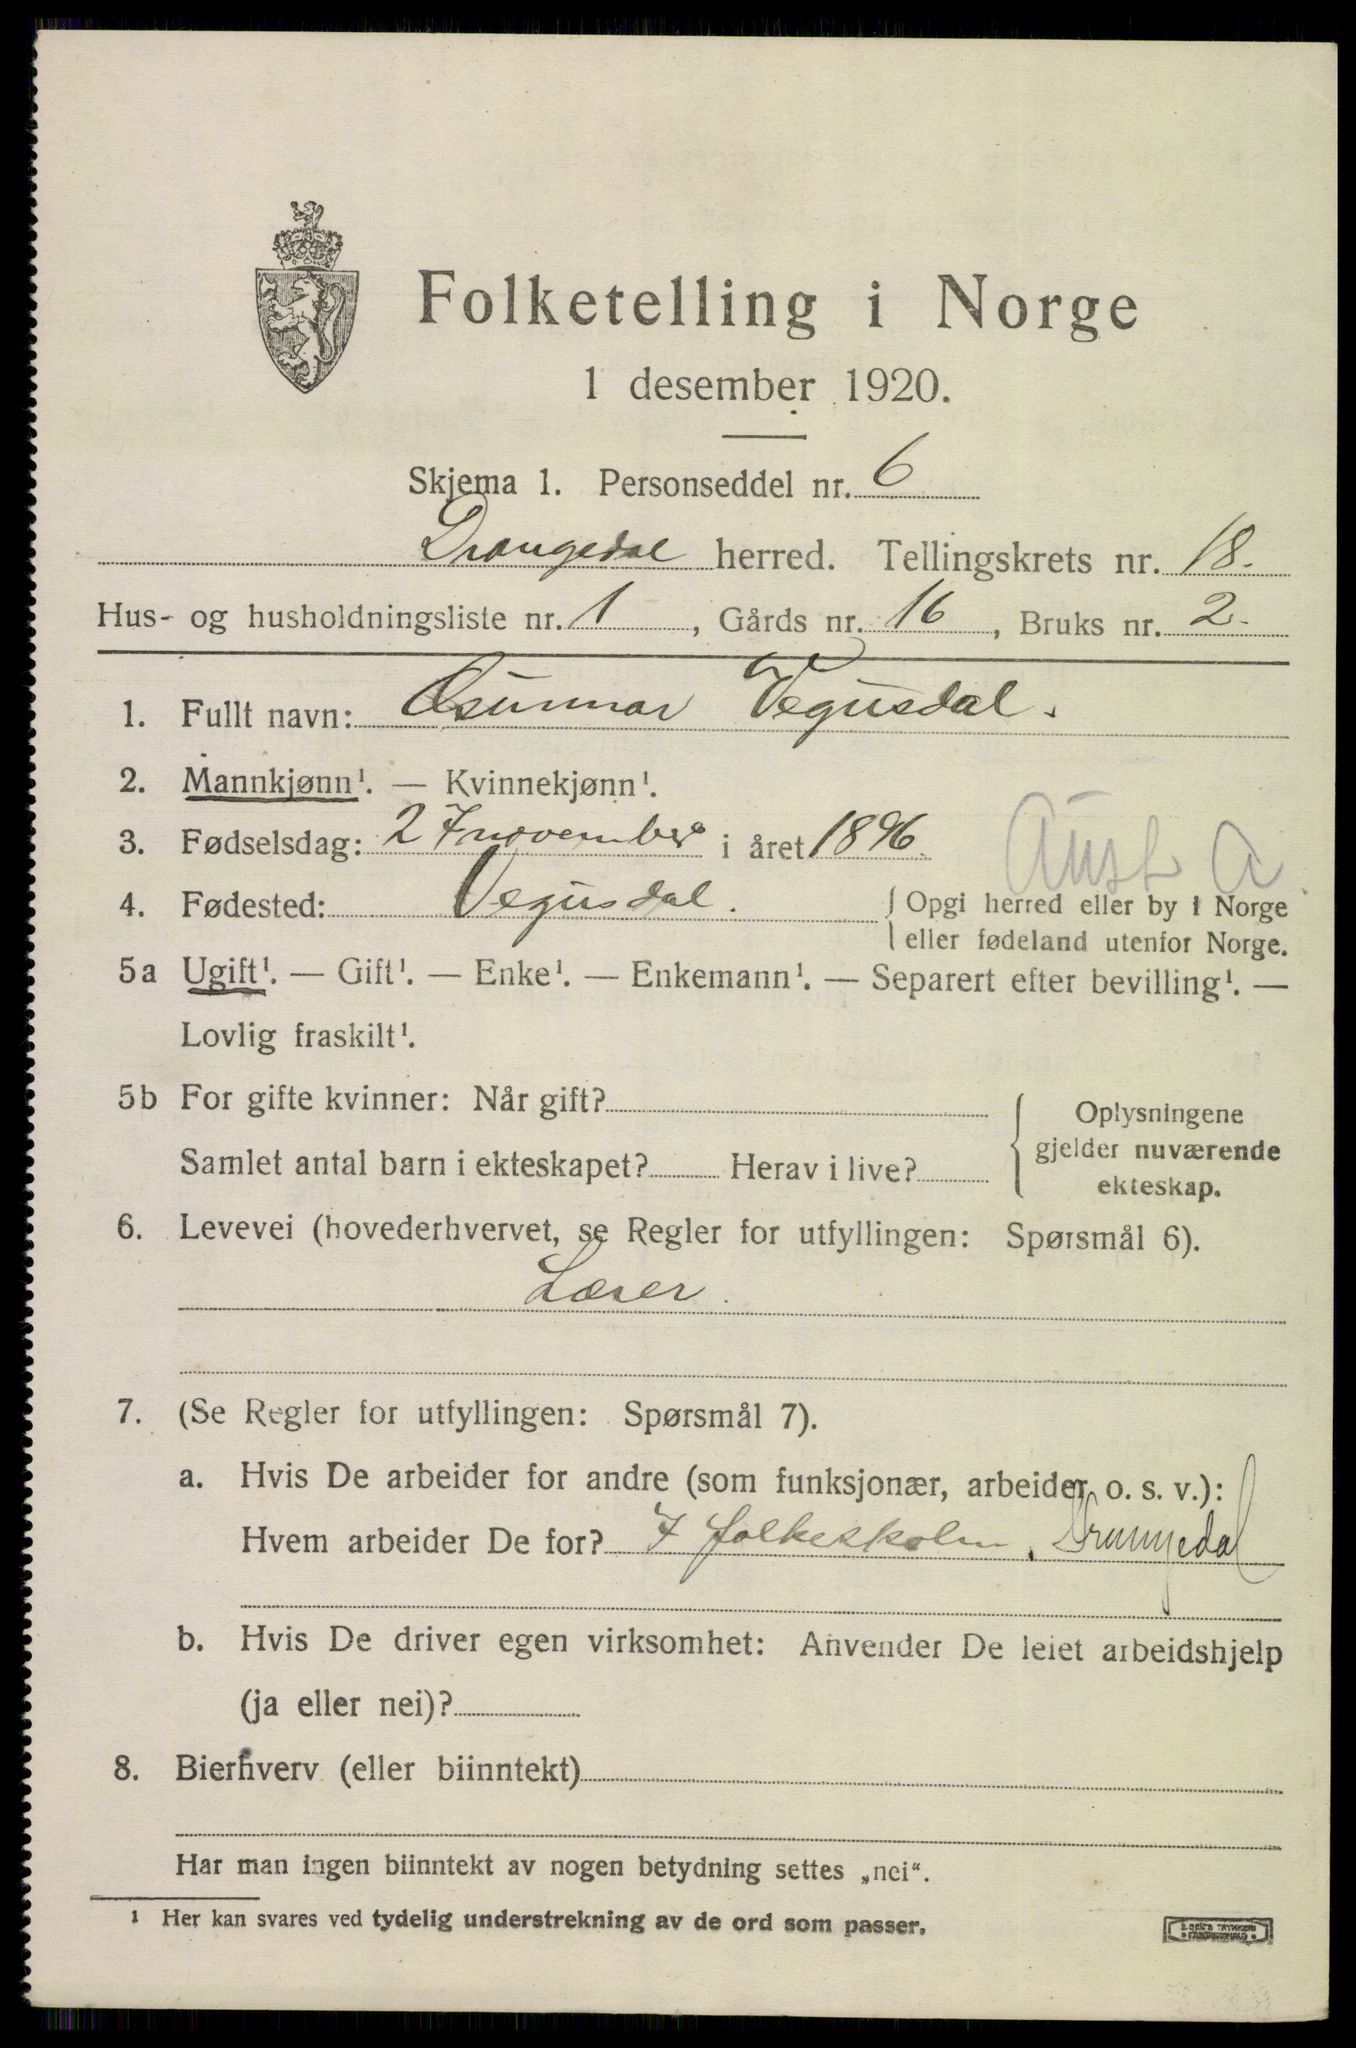 Folketelling i Norge
1 desember 1920.
Skjema 1. Personseddel nr. 6
Drangedal herred. Tellingskrets nr. 18.
Hus- og husholdningsliste nr. 1, Gårds nr. 16, Bruks nr. 2.
1. Fullt navn: Osunnar Vegusdal.
2. Mannkjønn¹. — Kvinnekjønn¹.
3. Fødselsdag: 27 november i året 1896.
Aust A.
4. Fødested: Vegusdal. { Opgi herred eller by i Norge
eller fødeland utenfor Norge.
5a Ugift¹. — Gift¹. — Enke¹. — Enkemann¹. — Separert efter bevilling¹. —
Lovlig fraskilt¹.
5b For gifte kvinner: Når gift? { Oplysningene
gjelder nuværende
Samlet antal barn i ekteskapet? Herav i live?
ekteskap.
6. Levevei (hovederhvervet, se Regler for utfyllingen: Spørsmål 6).
Lærer.
7. (Se Regler for utfyllingen: Spørsmål 7).
a. Hvis De arbeider for andre (som funksjonær, arbeider, o. s. v.):
Hvem arbeider De for? I folkeskolen, Drangedal
b. Hvis De driver egen virksomhet: Anvender De leiet arbeidshjelp
(ja eller nei)?
8. Bierhverv (eller biinntekt)
Har man ingen biinntekt av nogen betydning settes „nei“.
¹ Her kan svares ved tydelig understrekning av de ord som passer.